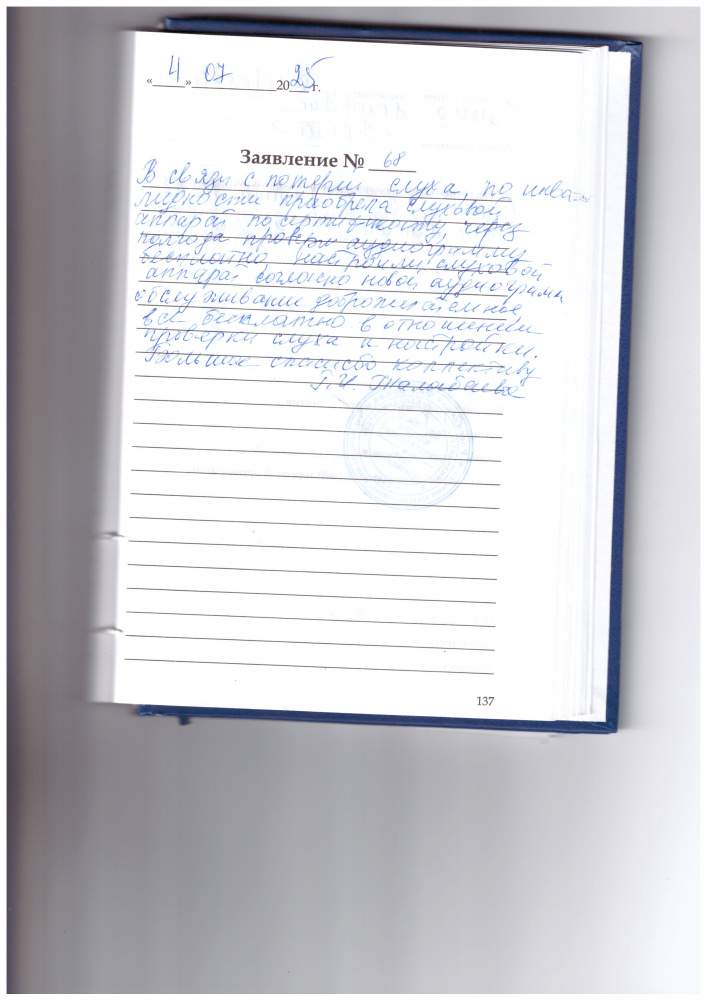 « 4 » 07 2025 г.
Заявление № 68
В связи с потерей слуха, по инва-
лидности приобрела слуховой
аппарат по сертификату, через
полгода проверили аудиограмму
бесплатно настроили слуховой
аппарат согласно новой аудиограмма
обслуживание доброжелательное,
всё бесплатно в отношении
проверки слуха и настройки.
Большое спасибо коллективу
Г.И.
137